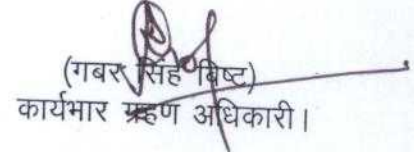 (गबर सिंह बिष्ट)
कार्यभार ग्रहण अधिकारी।